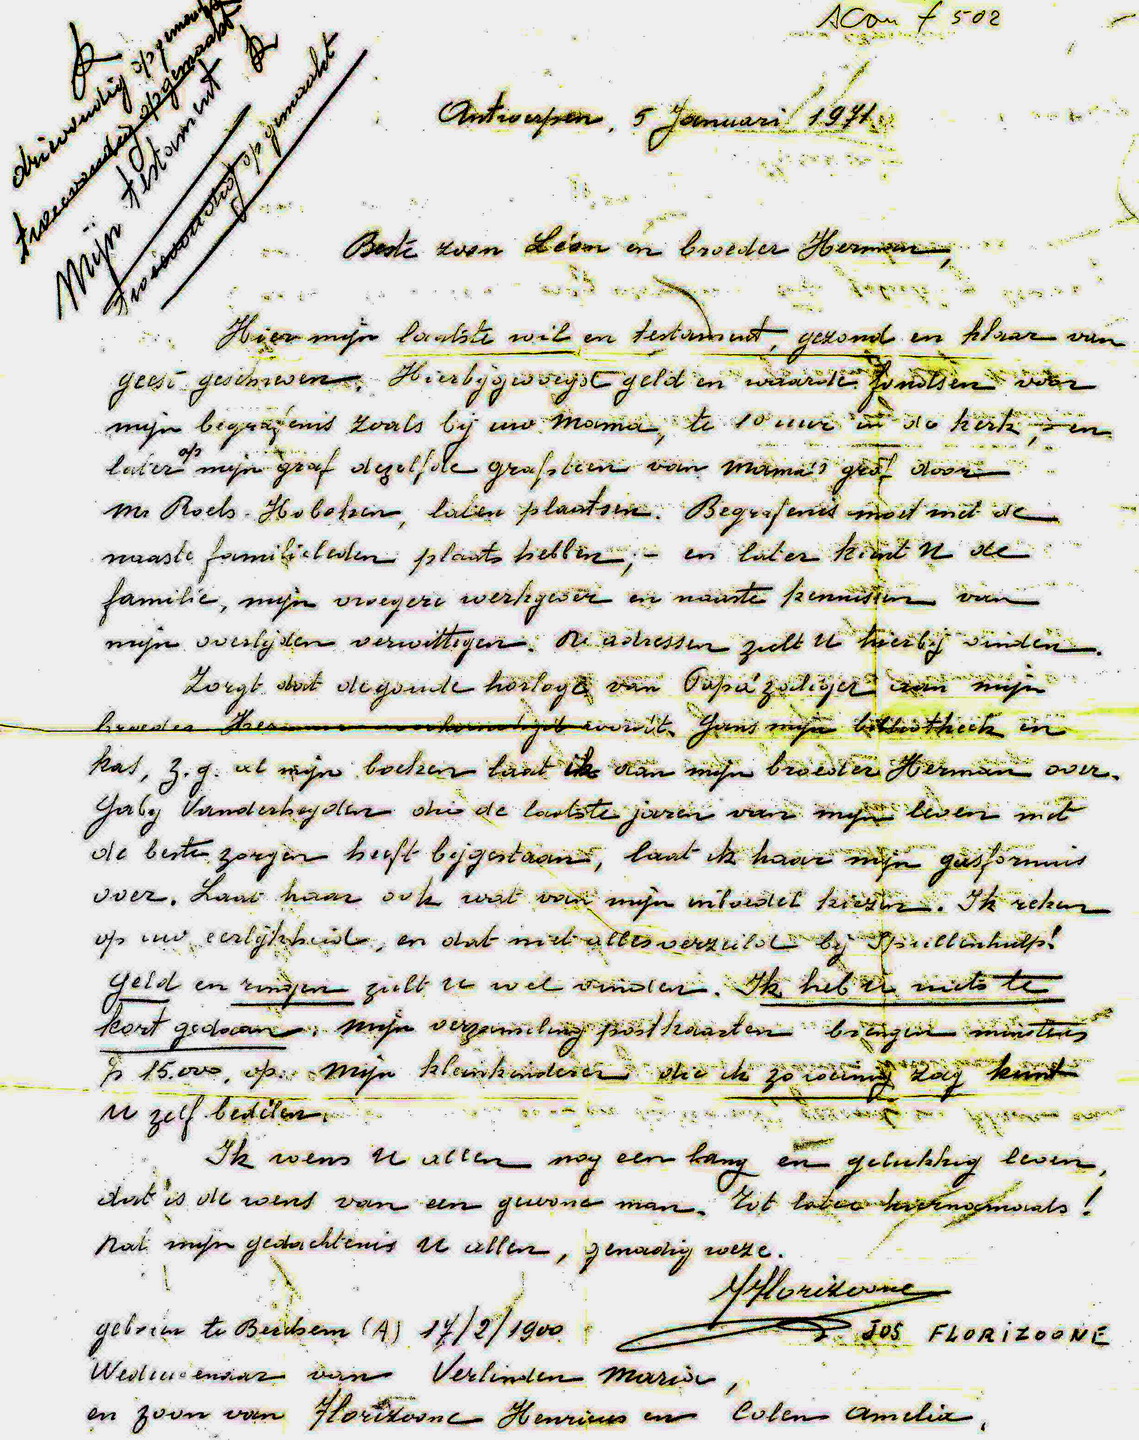 drievoudig opgemaakt
tweevoudig opgemaakt
Mijn testament
tweevoudig opgemaakt
502
Antwerpen, 5 Januari 1971
Beste zoon Léon en broeder Herman,
Hier mijn laatste wil en testament, gezond en klaar van
geest geschreven. Hierbijgevoegd geld en waarde fondsen voor
mijn begrafenis zoals bij uw Mama, te 10 uur in de kerk, - en
later op mijn graf dezelfde grafsteen van Mama's graf door
Mr Roels - Hoboken, laten plaatsen. Begrafenis moet met de
naaste familieleden plaats hebben, - en later kunt U de
familie, mijn vroegere werkgever en naaste kennissen van
mijn overlijden verwittigen. De adressen zult U hierbij vinden.
Zorgt dat de goude horloge van Papa zaliger aan mijn
broeder Herman wordt. Gans mijn bibliotheek en
kas, z.g. al mijn boeken laat ik aan mijn broeder Herman over.
Gaby Vanderheyden die de laatste jaren van mijn leven met
de beste zorgen heeft bijgestaan, laat ik haar mijn gasfornuis
over. Laat haar ook wat van mijn inboedel kiezen. Ik reken
op uw eerlijkheid, en dat niet alles verzeild bij Spullenhulp!
Geld en ringen zult U wel vinden. Ik heb U niets te
kort gedaan. Mijn verzameling postkaarten brengen minstens
15.000, op. Mijn kleinkinderen die ik zo weinig zag kunt
U zelf bedélen.
Ik wens U allen nog een lang en gelukkig leven,
dat is de wens van een gewone man. Tot later hiernamaals!
Dat mijn gedachtenis U allen, genadig weze.
JFlorizoone
JOS FLORIZOONE
geboren te Berchem (A) 17/2/1900
Weduwenaar van Verlinden Maria,
en zoon van Florizoone Henricus en Colen Amelia.